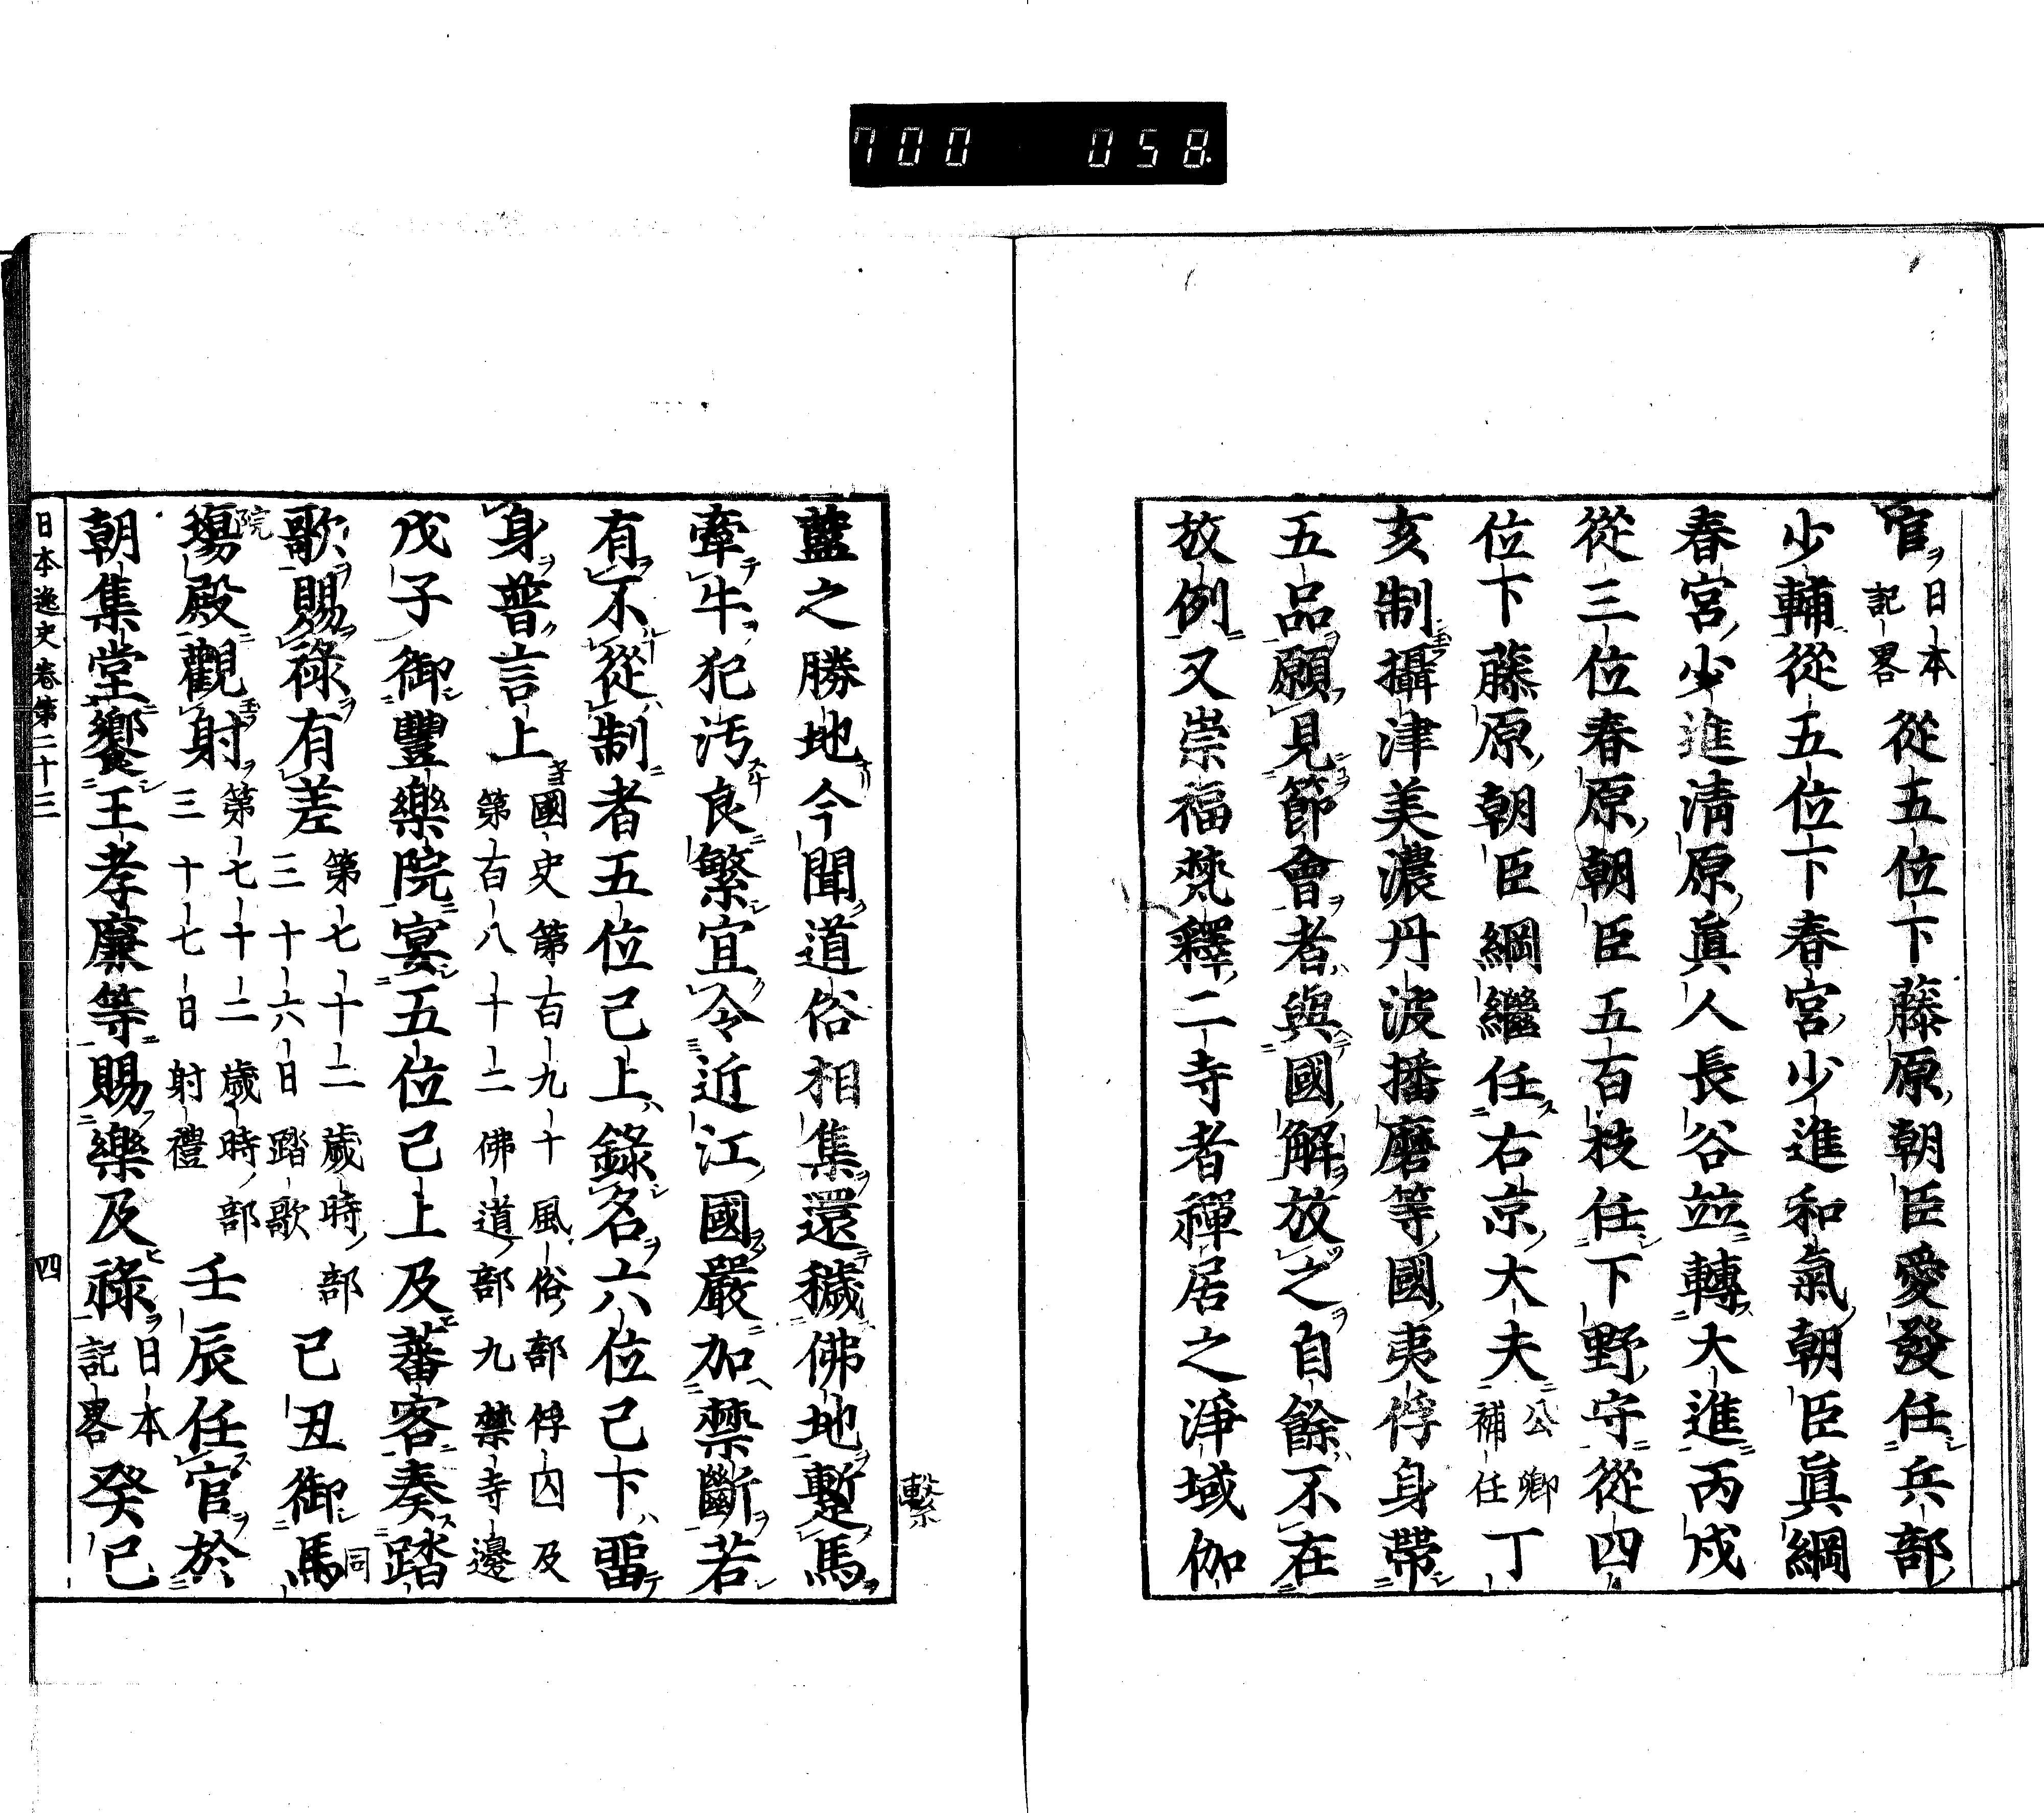 700 058
官日本記畧從五位下藤原朝臣愛發任兵部
少輔從五位下春宮少進和氣朝臣眞綱
春宮少進淸原眞人長谷竝轉大進丙戌
從三位春原朝臣五百枝任下野守從四
位下藤原朝臣綱繼任右京大夫公卿補任丁
亥制攝津美濃丹波播磨等國夷俘身帶
五品願見節會者與國解放之自餘不在
放例又崇福梵釋二寺者禪居之淨域伽
藍之勝地今聞道俗相集還穢佛地蹔馬
繫
牽牛犯汚良繁宜令近江國嚴加禁斷若
有不從制者五位已上錄名六位已下畱
身普言上國史第百九十風俗部俘囚及第百八十二佛道部九禁寺邊
戊子御豐樂院宴五位已上及蕃客奏踏
歌賜祿有差第七十二歲時部三十六日踏歌己丑御馬同
塲殿觀射第七十二歲時部三十七日射禮壬辰任官於
院
朝集堂饗王孝廉等賜樂及祿日本記畧癸巳
日本逸史卷第二十三 四